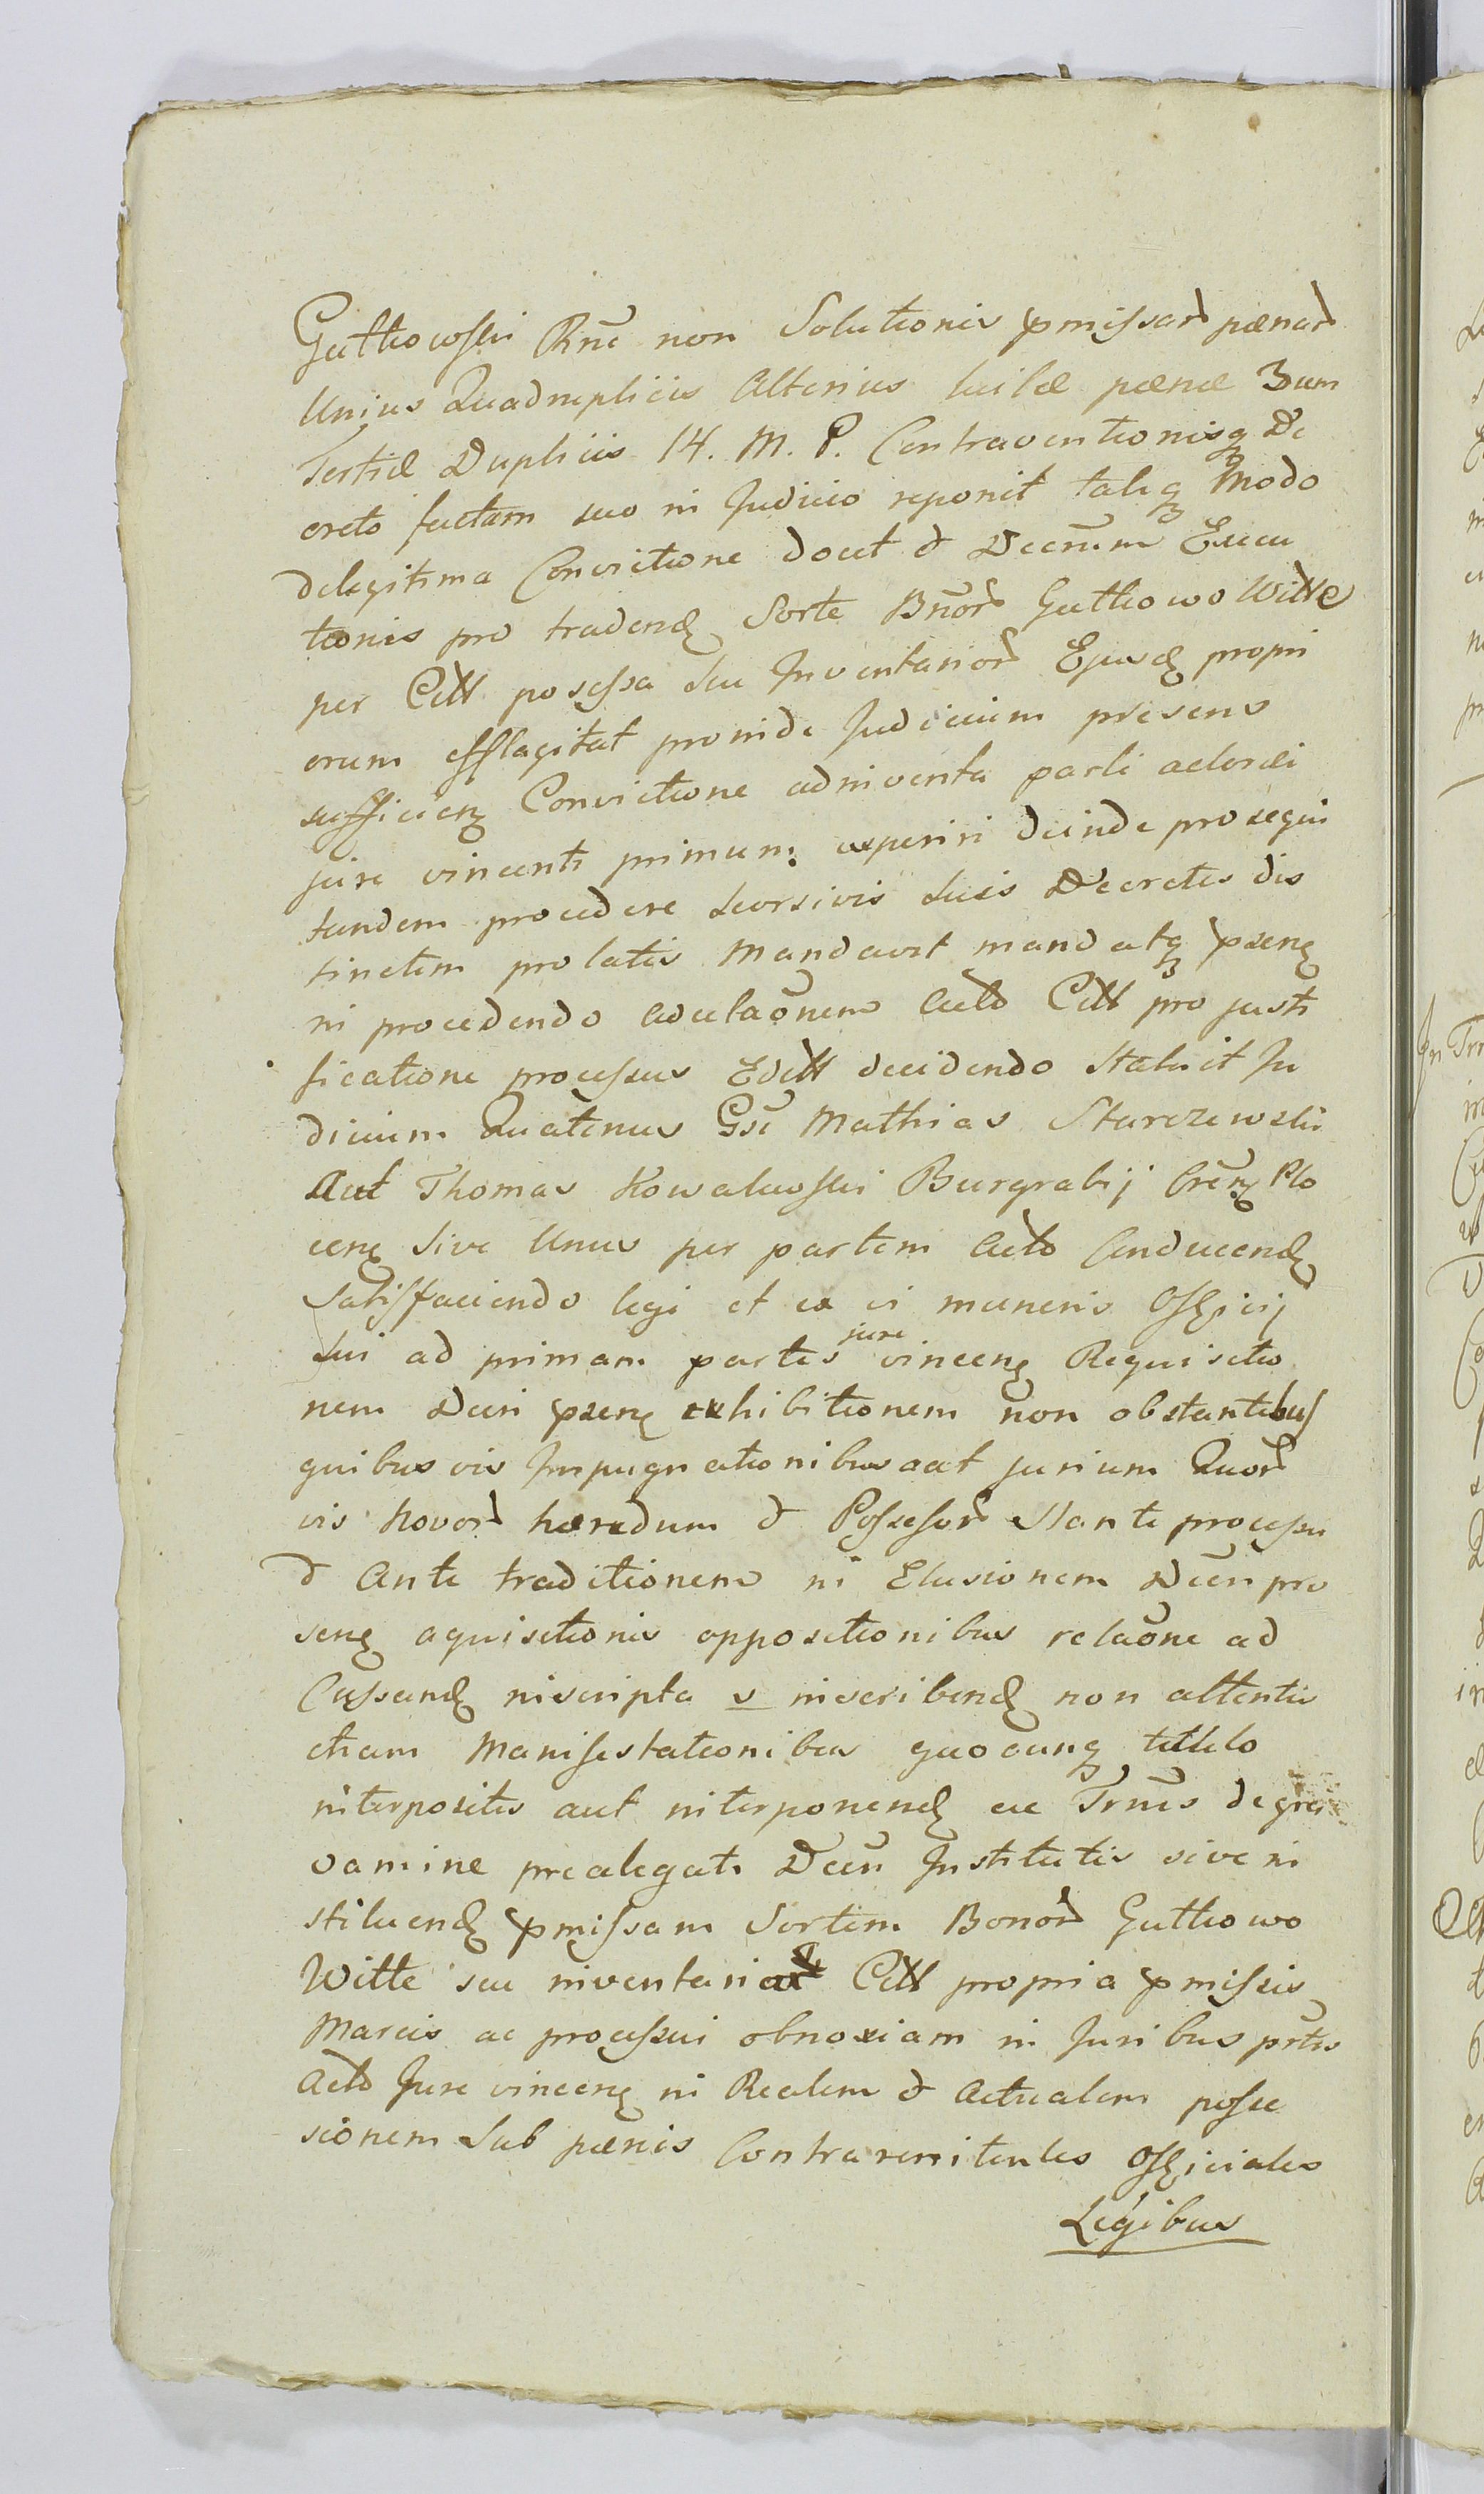 Gutkowski Rñe non Solutionis pmissar pænar
Unius Quadruplicis Alterius luitæ pænæ 3um
Tertiæ Duplicis 14. M. P. Contraventionisq De
creto factam suo in Judicio reponit taliq Modo
delegitima Convictione docet & Decrum Execu
tionis pro tradend Sorte Bnor Gutkowo Witte
per Citt posessa seu Inventarior Ejusd propri
orum efflagitat proinde Judicium præsens
sufficien Convictione adinventa parti actoræi
jure vincenti primum experiri deinde prosequi
tandem procedere seorsivis suis Decretis dis
tinctim prolatis Mandavit mandatq præn
in procedendo adcitaõnem Acto Citt pro justi
ficatione processus Editt decidendo Statuit Ju
dicium Quatenus Gsi Mathias Starozewski
Aut Thomas Kowalewski Burgrabij Cren Plo
cen sive Unus per partem Acto Conducend
Satisfaciendo legi et ex vi muneris Officij
Sui ad primam partis jure vincen Requisitio
nem Decri præn exhibitionem non obstantibus
quibus vis Impugnationibus aut jurium Quor
vis Novor hæredum & Possessor Stante processu
& Ante traditionem in Elusionem Decri præ
sen aquisitionis oppositionibus relaõne ad
Cassand inscripta v inscribend non attentis
etiam Manifestationibus quocunq titulo
interpositis aut interponend ex Trnis degra
vamine prealegati Decri Institutis sive in
stituend pmissam Sortem Bonor Gutkowo
Witte seu inventaria Citt propria pmissis
Marcis ac processui obnoxiam in Juribus prtis
Acto Jure vincen in Realem & Actualem posse
sionem Sub pænis Contra renitentes Officiales
Legibus